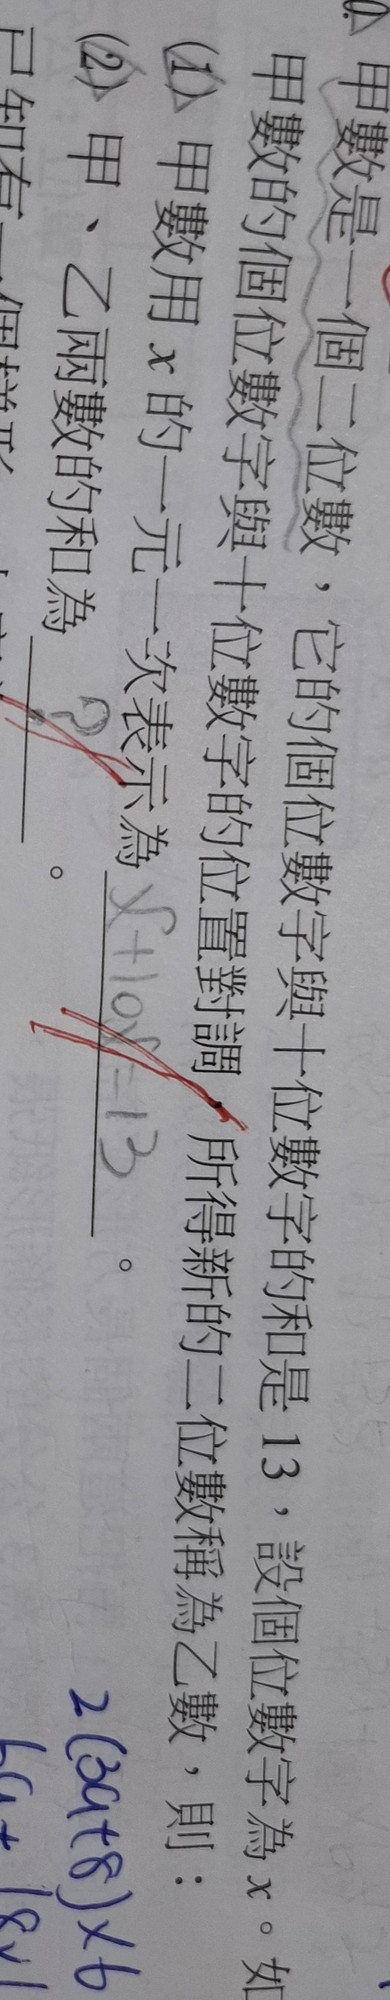 甲數是一個二位數，它的個位數字與十位數字的和是 13，設個位數字為 x。如
甲數的個位數字與十位數字的位置對調，所得新的二位數稱為乙數，則：
(1) 甲數用 x 的一元一次表示為 x+10x=13 。
(2) 甲、乙兩數的和為 ? 。
2(3a+8)×6
已知有一個梯形
6a+18×1